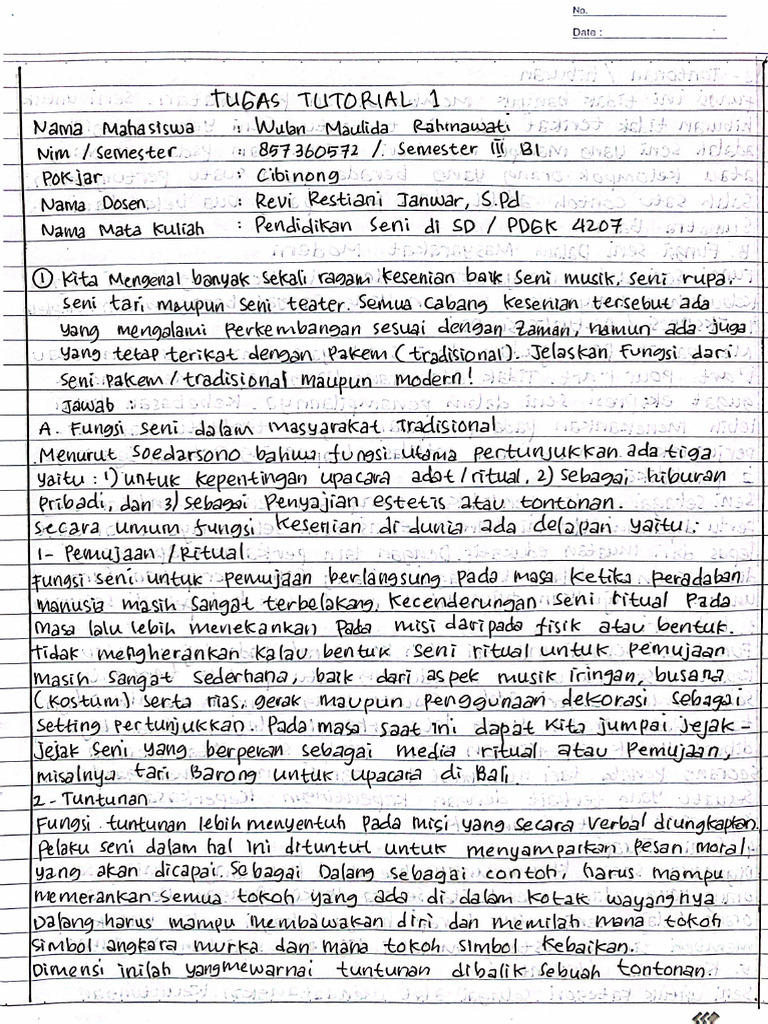 No.
Date :
TUGAS TUTORIAL 1
Nama Mahasiswa : Wulan Maulida Rahmawati
Nim / Semester : 857360572 / Semester III BI
Pokjar : Cibinong
Nama Dosen : Revi Restiani Janwar, S.Pd
Nama Mata Kuliah : Pendidikan Seni di SD / PDGK 4207
① Kita Mengenal banyak sekali ragam kesenian baik seni musik, seni rupa,
seni tari maupun seni teater. Semua cabang kesenian tersebut ada
yang mengalami Perkembangan sesuai dengan Zaman, namun ada juga
yang tetap terikat dengan pakem (tradisional). Jelaskan Fungsi dari
seni pakem / tradisional maupun modern!
Jawab :
A. Fungsi seni dalam masyarakat Tradisional
Menurut Soedarsono bahwa fungsi utama pertunjukkan ada tiga
yaitu : 1) untuk kepentingan upacara adat / ritual, 2) sebagai hiburan
Pribadi, dan 3) sebagai Penyajian estetis atau tontonan.
secara umum fungsi kesenian di dunia ada delapan yaitu :
1- Pemujaan / Ritual
Fungsi seni untuk pemujaan berlangsung pada masa ketika peradaban
manusia masih sangat terbelakang, kecenderungan seni ritual Pada
masa lalu lebih menekankan Pada misi daripada fisik atau bentuk.
Tidak mengherankan kalau bentuk seni ritual untuk pemujaan
masih sangat sederhana, baik dari aspek musik iringan, busana
(kostum) serta rias, gerak maupun penggunaan dekorasi sebagai
setting pertunjukkan. Pada masa saat ini dapat kita jumpai jejak -
jejak seni yang berperan sebagai media ritual atau Pemujaan,
misalnya tari Barong untuk upacara di Bali.
2 - Tuntunan
Fungsi tuntunan lebih menyentuh pada misi yang secara verbal diungkapkan.
Pelaku seni dalam hal ini dituntut untuk menyampaikan pesan moral
yang akan dicapai. Sebagai Dalang sebagai contoh, harus mampu
memerankan semua tokoh yang ada di dalam kotak wayangnya
Dalang harus mampu membawakan diri dan memilah mana tokoh
simbol angkara murka dan mana tokoh simbol kebaikan.
Dimensi inilah yang mewarnai tuntunan dibalik sebuah tontonan.